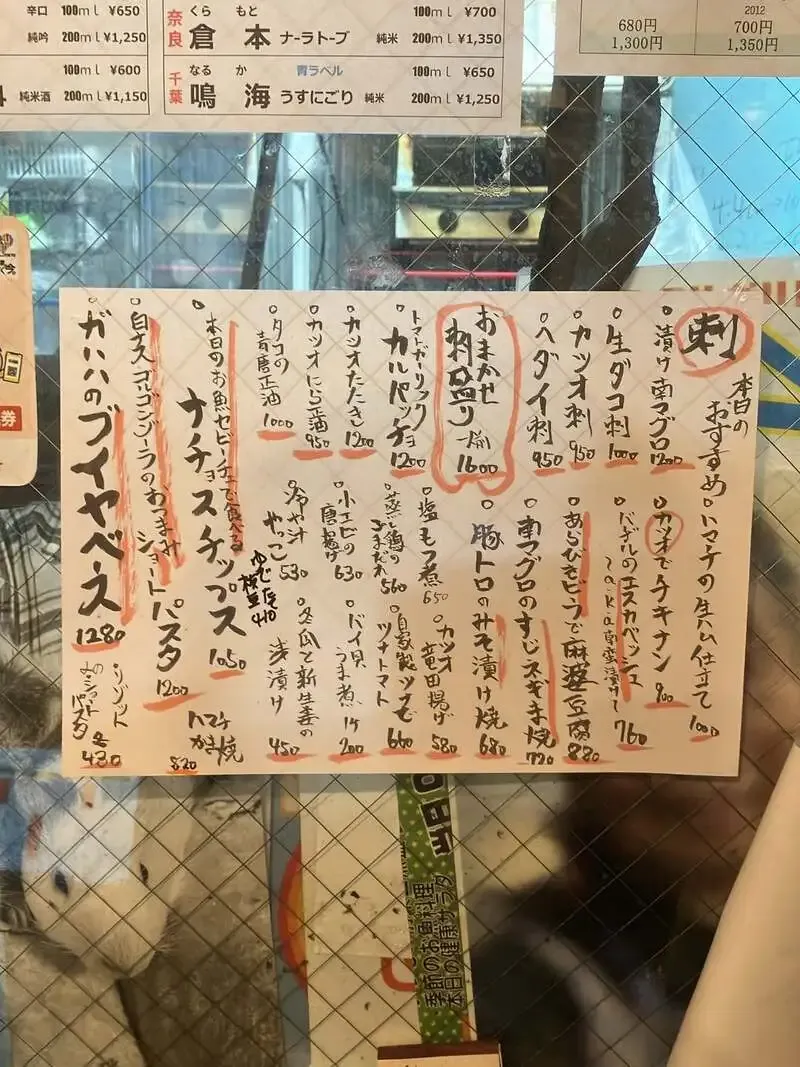 辛口 100ml ¥650
純吟 200ml ¥1,250
100ml ¥600
純米酒 200ml ¥1,150
奈良 くらもと 倉本 ナーラトーブ 純米 100ml ¥700
200ml ¥1,350
千葉 なるか 鳴海 青ラベル うすにごり 純米 100ml ¥650
200ml ¥1,250
680円
1,300円
2012
700円
1,350円
刺
本日のおすすめ
漬け南マグロ 1200
生ダコ刺 1000
カツオ刺 950
ヘダイ刺 950
おまかせ
刺盛り
1600
トマトガーリック
カルパッチョ 1200
カツオたたき 1200
カツオにら正油 950
タコの
青唐正油 1000
本日のお魚セビーチェで食べる
ナチョスチップス 1050
白ナスゴルゴンゾーラのおつまみ
ショートパスタ 1200
ガハハのブイヤベース 1280
ハマチの生ハム仕立て 1000
カツオでチキナン 900
エスカベッシュ
760
あらびきビーフで麻婆豆腐 880
南マグロのすじネギま焼 770
豚トロのみそ漬け焼 680
塩もつ煮 650
カツオ
竜田揚げ 580
蒸し鶏の
ごまだれ 560
自家製ツナで
ツナトマト 660
小エビの
唐揚げ 630
バイ貝
うま煮 1ケ 200
冷や汁
やっこ 530
冬瓜と新生姜の
浅漬け 450
ゆでたて
枝豆 410
ハマチ
かま焼 820
リゾット
ショートパスタ
430
季節のお魚料理
本日の健康サラダ
券